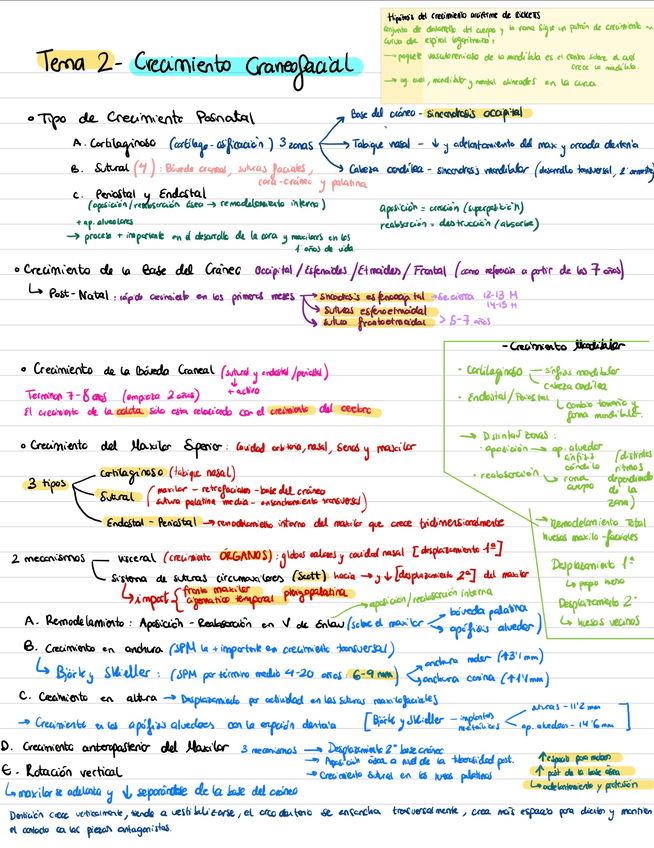 Hipótesis del crecimiento arciforme de RICKETTS
conjunto de desarrollo del cuerpo y la rama sigue un patrón de crecimiento
curva de espiral logarítmica:
→ paquete vasculonervioso de la mandíbula es el centro sobre el cual
crece la mandíbula.
→ ag. oval, mandibular y mental alineados en la curva.
Tema 2 - Crecimiento Craneofacial
• Tipo de Crecimiento Posnatal
A. Cartilaginoso (cartílago - osificación) 3 zonas
Base del cráneo - sincondrosis occipital
Tabique nasal - ↓ y adelantamiento del max y arcada dentaria
Cabeza condílea - sincondrosis mandibular (desarrollo transversal,
B. Sutural (4): Bóveda craneal, suturas faciales,
cara-cráneo y palatina
C. Periostal y Endostal
(aposición/reabsorción ósea → remodelamiento interno)
+ ap. alveolares
→ proceso + importante en el desarrollo de la cara y maxilares en los
1 años de vida
aposición = creación (superposición)
reabsorción = destrucción (absorbe)
• Crecimiento de la Base del Cráneo Occipital / Esfenoides / Etmoides / Frontal (como referencia a partir de los 7 años)
↳ Post-Natal: rápido crecimiento en los primeros meses
sincondrosis esfenooccipital → se cierra 12-13 M
14-15 H
suturas esfenoetmoidal
sutura frontoetmoidal > 5-7 años
• Crecimiento de la Bóveda Craneal (sutural y endostal/periostal)
+ activo
Terminan 7-8 años (empieza 2 años)
El crecimiento de la calota solo esta relacionado con el crecimiento del cerebro
- Crecimiento Mandibular
• Cartilaginoso
sínfisis mandibular
cabeza condílea
• Endostal / Periostal
↳ cambio tamaño y
forma mandibular.
→ Distintas zonas:
• aposición → ap. alveolar
sínfisis
cóndilo
• reabsorción ↳ rama
cuerpo
(distintos
ritmos
dependiendo
de la
zona)
→ Remodelamiento Total
huesos maxilo-faciales
Desplazamiento 1º
↳ propio hueso
Desplazamiento 2º
↳ huesos vecinos
• Crecimiento del Maxilar Superior: cavidad orbitaria, nasal, senos y maxilar
3 tipos
Cartilaginoso (tabique nasal)
Sutural (maxilar - retrofaciales - base del cráneo
sutura palatina media - ensanchamiento transversal)
Endostal - Periostal → remodelamiento interno del maxilar que crece tridimensionalmente
2 mecanismos
visceral (crecimiento ÓRGANOS): globos oculares y cavidad nasal [desplazamiento 1º]
Sistema de suturas circumaxilares (Scott) hacia → y ↓ [desplazamiento 2º] del maxilar
↳ import. { fronto maxilar
cigomatico temporal pterigopalatina
→ aposición/reabsorción interna
A. Remodelamiento: Aposición - Reabsorción en V de Enlow (sobre el maxilar)
bóveda palatina
apófisis alveolar)
B. Crecimiento en anchura (SPM la + importante en crecimiento transversal)
↳ Björk y Skieller: (SPM por término medio 4-20 años: 6-9 mm)
anchura molar (↑3'1 mm)
anchura canina (↑1'1 mm)
C. Crecimiento en altura → Desplazamiento por actividad en las suturas maxilofaciales
→ Crecimiento en las apófisis alveolares con la erupción dentaria
[Björk y Skieller - implantes
metálicos
suturas - 11'2 mm
ap. alveolar - 14'6 mm]
D. Crecimiento anteroposterior del Maxilar 3 mecanismos
→ Desplazamiento 2º base cráneo
→ Aposición ósea a nivel de la tuberosidad post.
→ Crecimiento sutural en las suturas palatinas
↑ espacio para molares
↑ post de la base ósea
↳ adelantamiento y protrusión
E. Rotación vertical
↳ maxilar se adelanta y ↓ separándose de la base del cráneo
Dentición crece verticalmente, tiende a vestibulizarse, el arco dentario se ensancha transversalmente, crea más espacio para dientes y mantiene
el contacto con las piezas antagonistas.